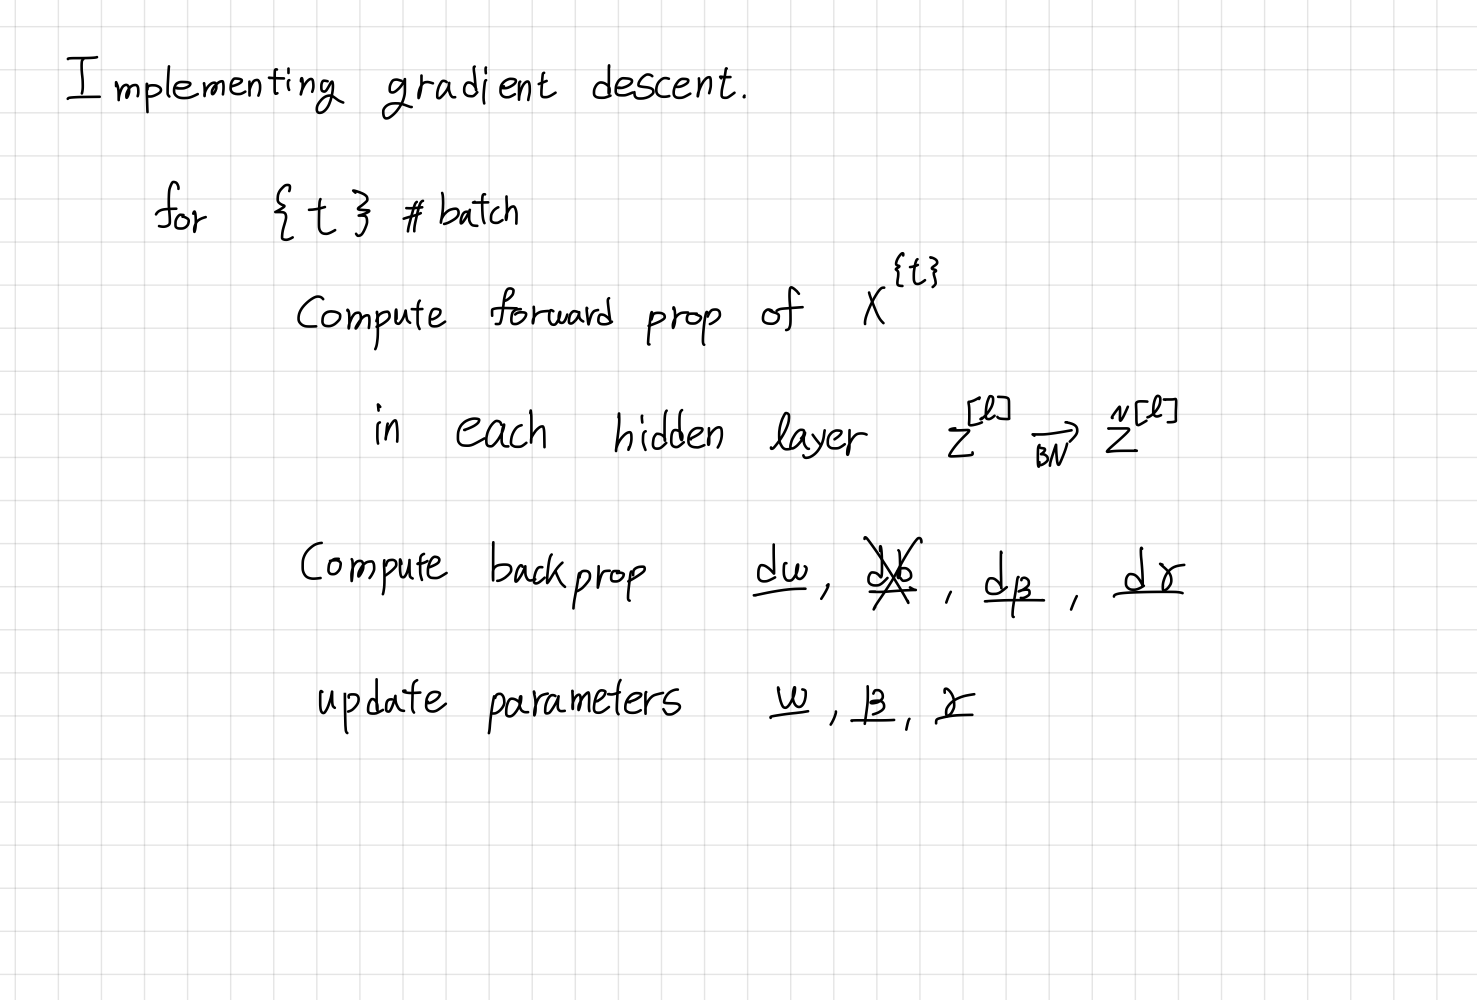 Implementing gradient descent.
for {t} # batch
Compute forward prop of X^{t}
in each hidden layer Z^[l] →BN Z̃^[l]
Compute backprop dw, db, dβ, dγ
update parameters w, β, γ